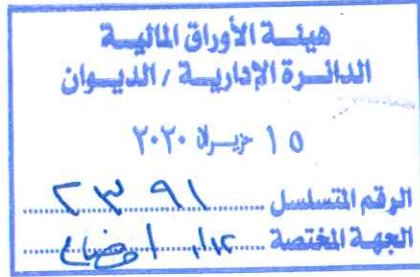 هيئة الأوراق المالية
الدائرة الإدارية / الديوان
١٥ حزيران ٢٠٢٠
الرقم المتسلسل ٢٣٩١
الجهة المختصة